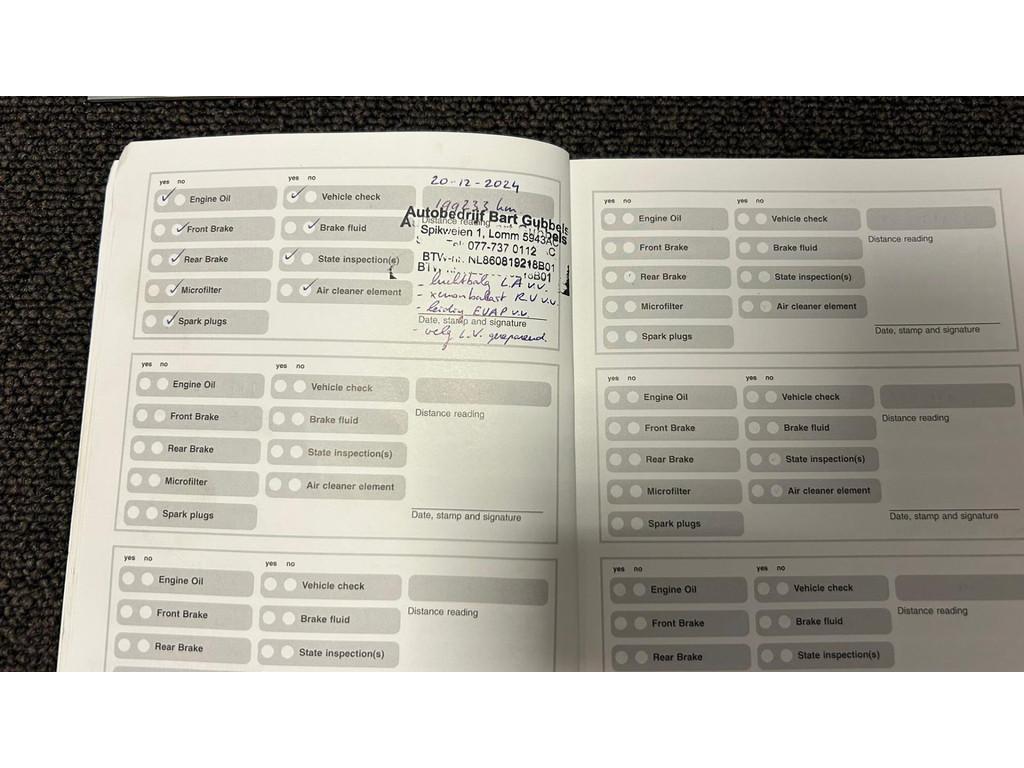 yes no yes no
Engine Oil Vehicle check
Front Brake Brake fluid
Rear Brake State inspection(s)
Microfilter Air cleaner element
Spark plugs
20-12-2024
199233 km
Distance reading
Autobedrijf Bart Gubbels
Spikweien 1, Lomm 5943AC
Tel. 077-737 0112
BTW-nr. NL860819218B01
- luchtbalg L.A v.v.
- xenonballast R.V v.v.
- leiding EVAP v.v.
Date, stamp and signature
- velg L.V. gerepareerd.
yes no yes no
Engine Oil Vehicle check
Front Brake Brake fluid
Rear Brake State inspection(s)
Microfilter Air cleaner element
Spark plugs
Distance reading
Date, stamp and signature
yes no yes no
Engine Oil Vehicle check
Front Brake Brake fluid
Rear Brake State inspection(s)
Distance reading
yes no yes no
Engine Oil Vehicle check
Front Brake Brake fluid
Rear Brake State inspection(s)
Microfilter Air cleaner element
Spark plugs
Distance reading
Date, stamp and signature
yes no yes no
Engine Oil Vehicle check
Front Brake Brake fluid
Rear Brake State inspection(s)
Microfilter Air cleaner element
Spark plugs
Distance reading
Date, stamp and signature
yes no yes no
Engine Oil Vehicle check
Front Brake Brake fluid
Rear Brake State inspection(s)
Distance reading